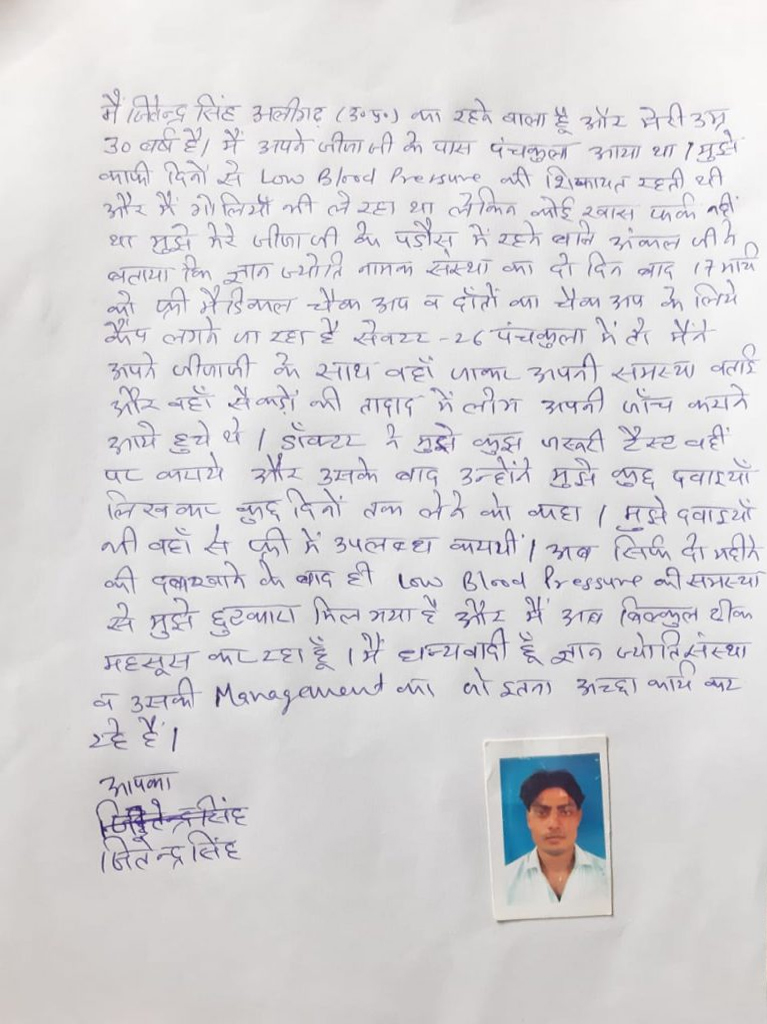 मैं जितेन्द्र सिंह अलीगढ़ (उ.प्र.) का रहने वाला हूँ और मेरी उम्र
30 वर्ष है। मैं अपने जीजा जी के पास पंचकुला आया था। मुझे
काफी दिनों से Low Blood Pressure की शिकायत रहती थी
और मैं गोलियाँ भी ले रहा था लेकिन कोई खास फर्क नहीं
था मुझे मेरे जीजा जी के पड़ौस में रहने वाले अंकल जी ने
बताया कि ज्ञान ज्योति नामक संस्था का दो दिन बाद 17 मार्च
को फ्री मैडिकल चैक अप व दाँतों का चैक अप के लिये
कैंप लगने जा रहा है सेक्टर -26 पंचकुला में तो मैंने
अपने जीजाजी के साथ वहाँ जाकर अपनी समस्या बताई
और वहाँ सैकड़ों की तादाद में लोग अपनी जाँच कराने
आये हुये थे। डॉक्टर ने मुझे कुछ जरूरी टैस्ट वहीं
पर कराये और उसके बाद उन्होंने मुझे कुछ दवाइयाँ
लिखकर कुछ दिनों तक लेने को कहा। मुझे दवाइयाँ
भी वहाँ से फ्री में उपलब्ध करायीं। अब सिर्फ दो महीने
की दवा खाने के बाद ही Low Blood Pressure की समस्या
से मुझे छुटकारा मिल गया है और मैं अब बिल्कुल ठीक
महसूस कर रहा हूँ। मैं धन्यवादी हूँ ज्ञान ज्योति संस्था
व उसकी Management का जो इतना अच्छा कार्य कर
रहे हैं।
आपका
जितेन्द्र सिंह
जितेन्द्र सिंह